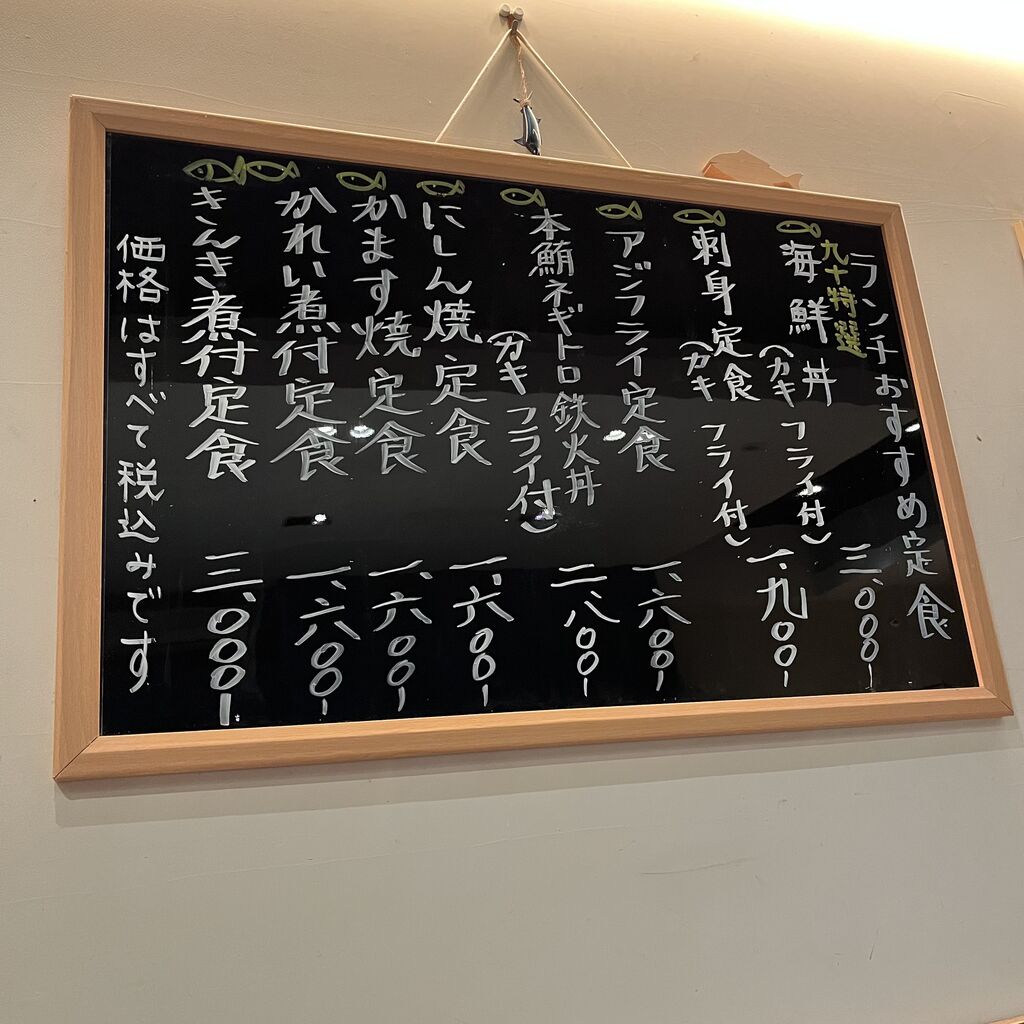 ランチおすすめ定食
九十特選
海鮮丼
(カキフライ付)
三、000-
刺身定食
(カキフライ付)
一、九00-
アジフライ定食
一、六00-
本鮪ネギトロ鉄火丼
(カキフライ付)
二、八00-
にしん焼定食
一、六00-
かます焼定食
一、六00-
かれい煮付定食
一、六00-
きんき煮付定食
三、000-
価格はすべて税込みです